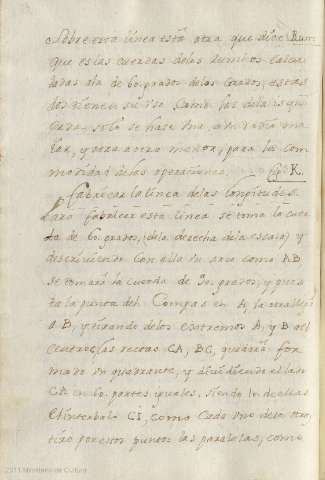 Sobre esta linea está otra que dice Rum.
que es las cuerdas de los rumbos calcu
ladas a la de 60. grados de los Grados; estas
dos tienen su uso como las de la
solo se hase una a un radio ma
ior, y otra a otro menor, para la com
modidad de las operaciones. Cap. K.
Fabricar la linea de las longitudes.
Para fabricar esta linea se toma la cuer
da de 60. grados, (de la derecha de la escala) y
descriviendo con ella un arco como AB
se tomará la cuerda de 90. grados, y pues
ta la punta del Compas en A, la otra
a B, y tirando de los extremos A, y B al
centro, las rectas CA, BC, quedará for
mado un quadrante, y dividiendo el lado
CA en 60. partes iguales, siendo una de ellas
el interbalo CI, como cada uno de los otros,
tirese por estos puntos las paralelas, como
2011 Ministerio de Cultura